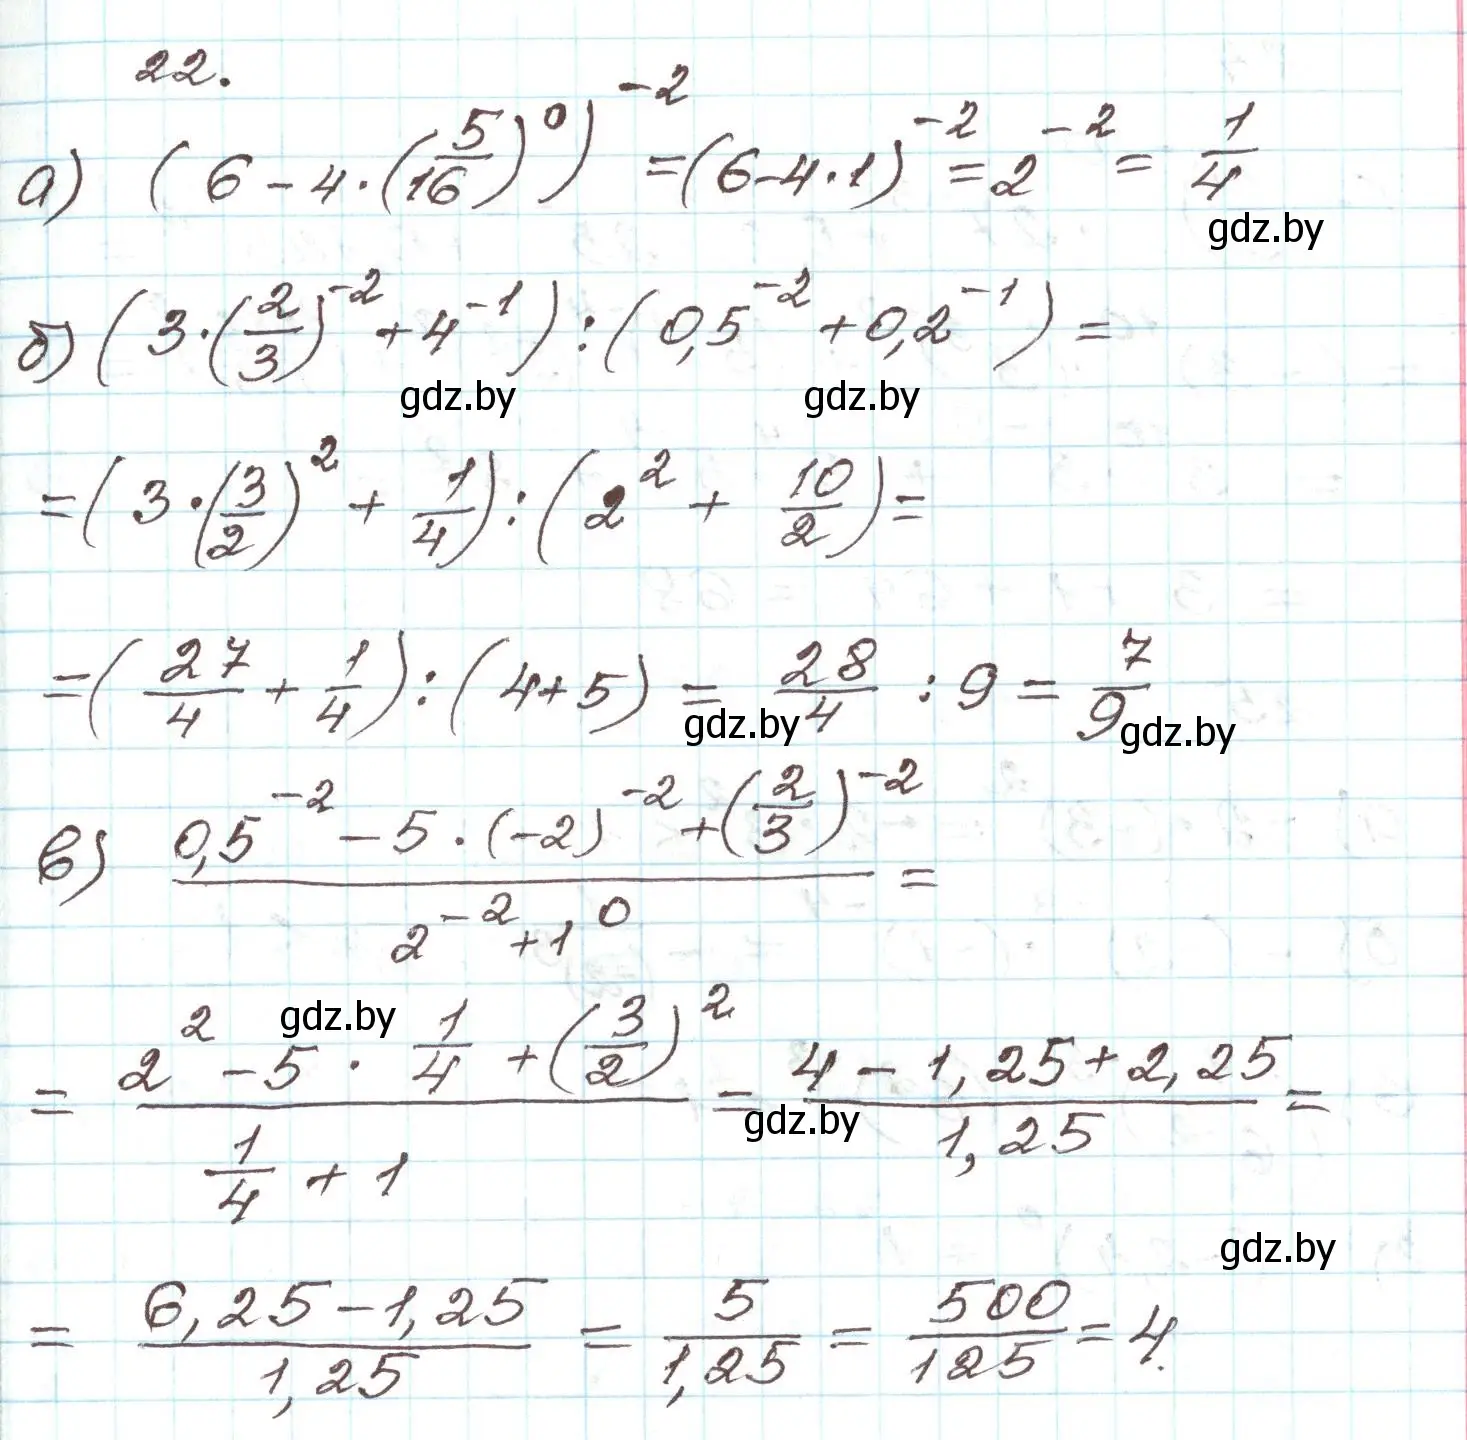 22.
а) (6 - 4·(5/16)^0)^-2 = (6-4·1)^-2 = 2^-2 = 1/4
gdz.by
б) (3·(2/3)^-2 + 4^-1) : (0,5^-2 + 0,2^-1) =
gdz.by gdz.by
= (3·(3/2)^2 + 1/4) : (2^2 + 10/2) =
= (27/4 + 1/4) : (4+5) = 28/4 : 9 = 7/9
gdz.by gdz.by
в) (0,5^-2 - 5·(-2)^-2 + (2/3)^-2)/(2^-2 + 1^0) =
gdz.by
= (2^2 - 5·1/4 + (3/2)^2)/(1/4 + 1) = (4 - 1,25 + 2,25)/(1,25) =
gdz.by
gdz.by
= (6,25 - 1,25)/(1,25) = 5/(1,25) = 500/125 = 4.